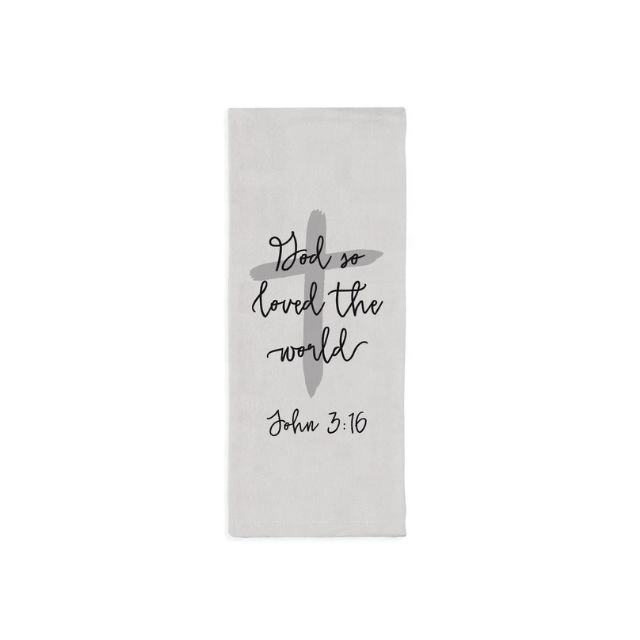 God so
loved the
world
John 3:16